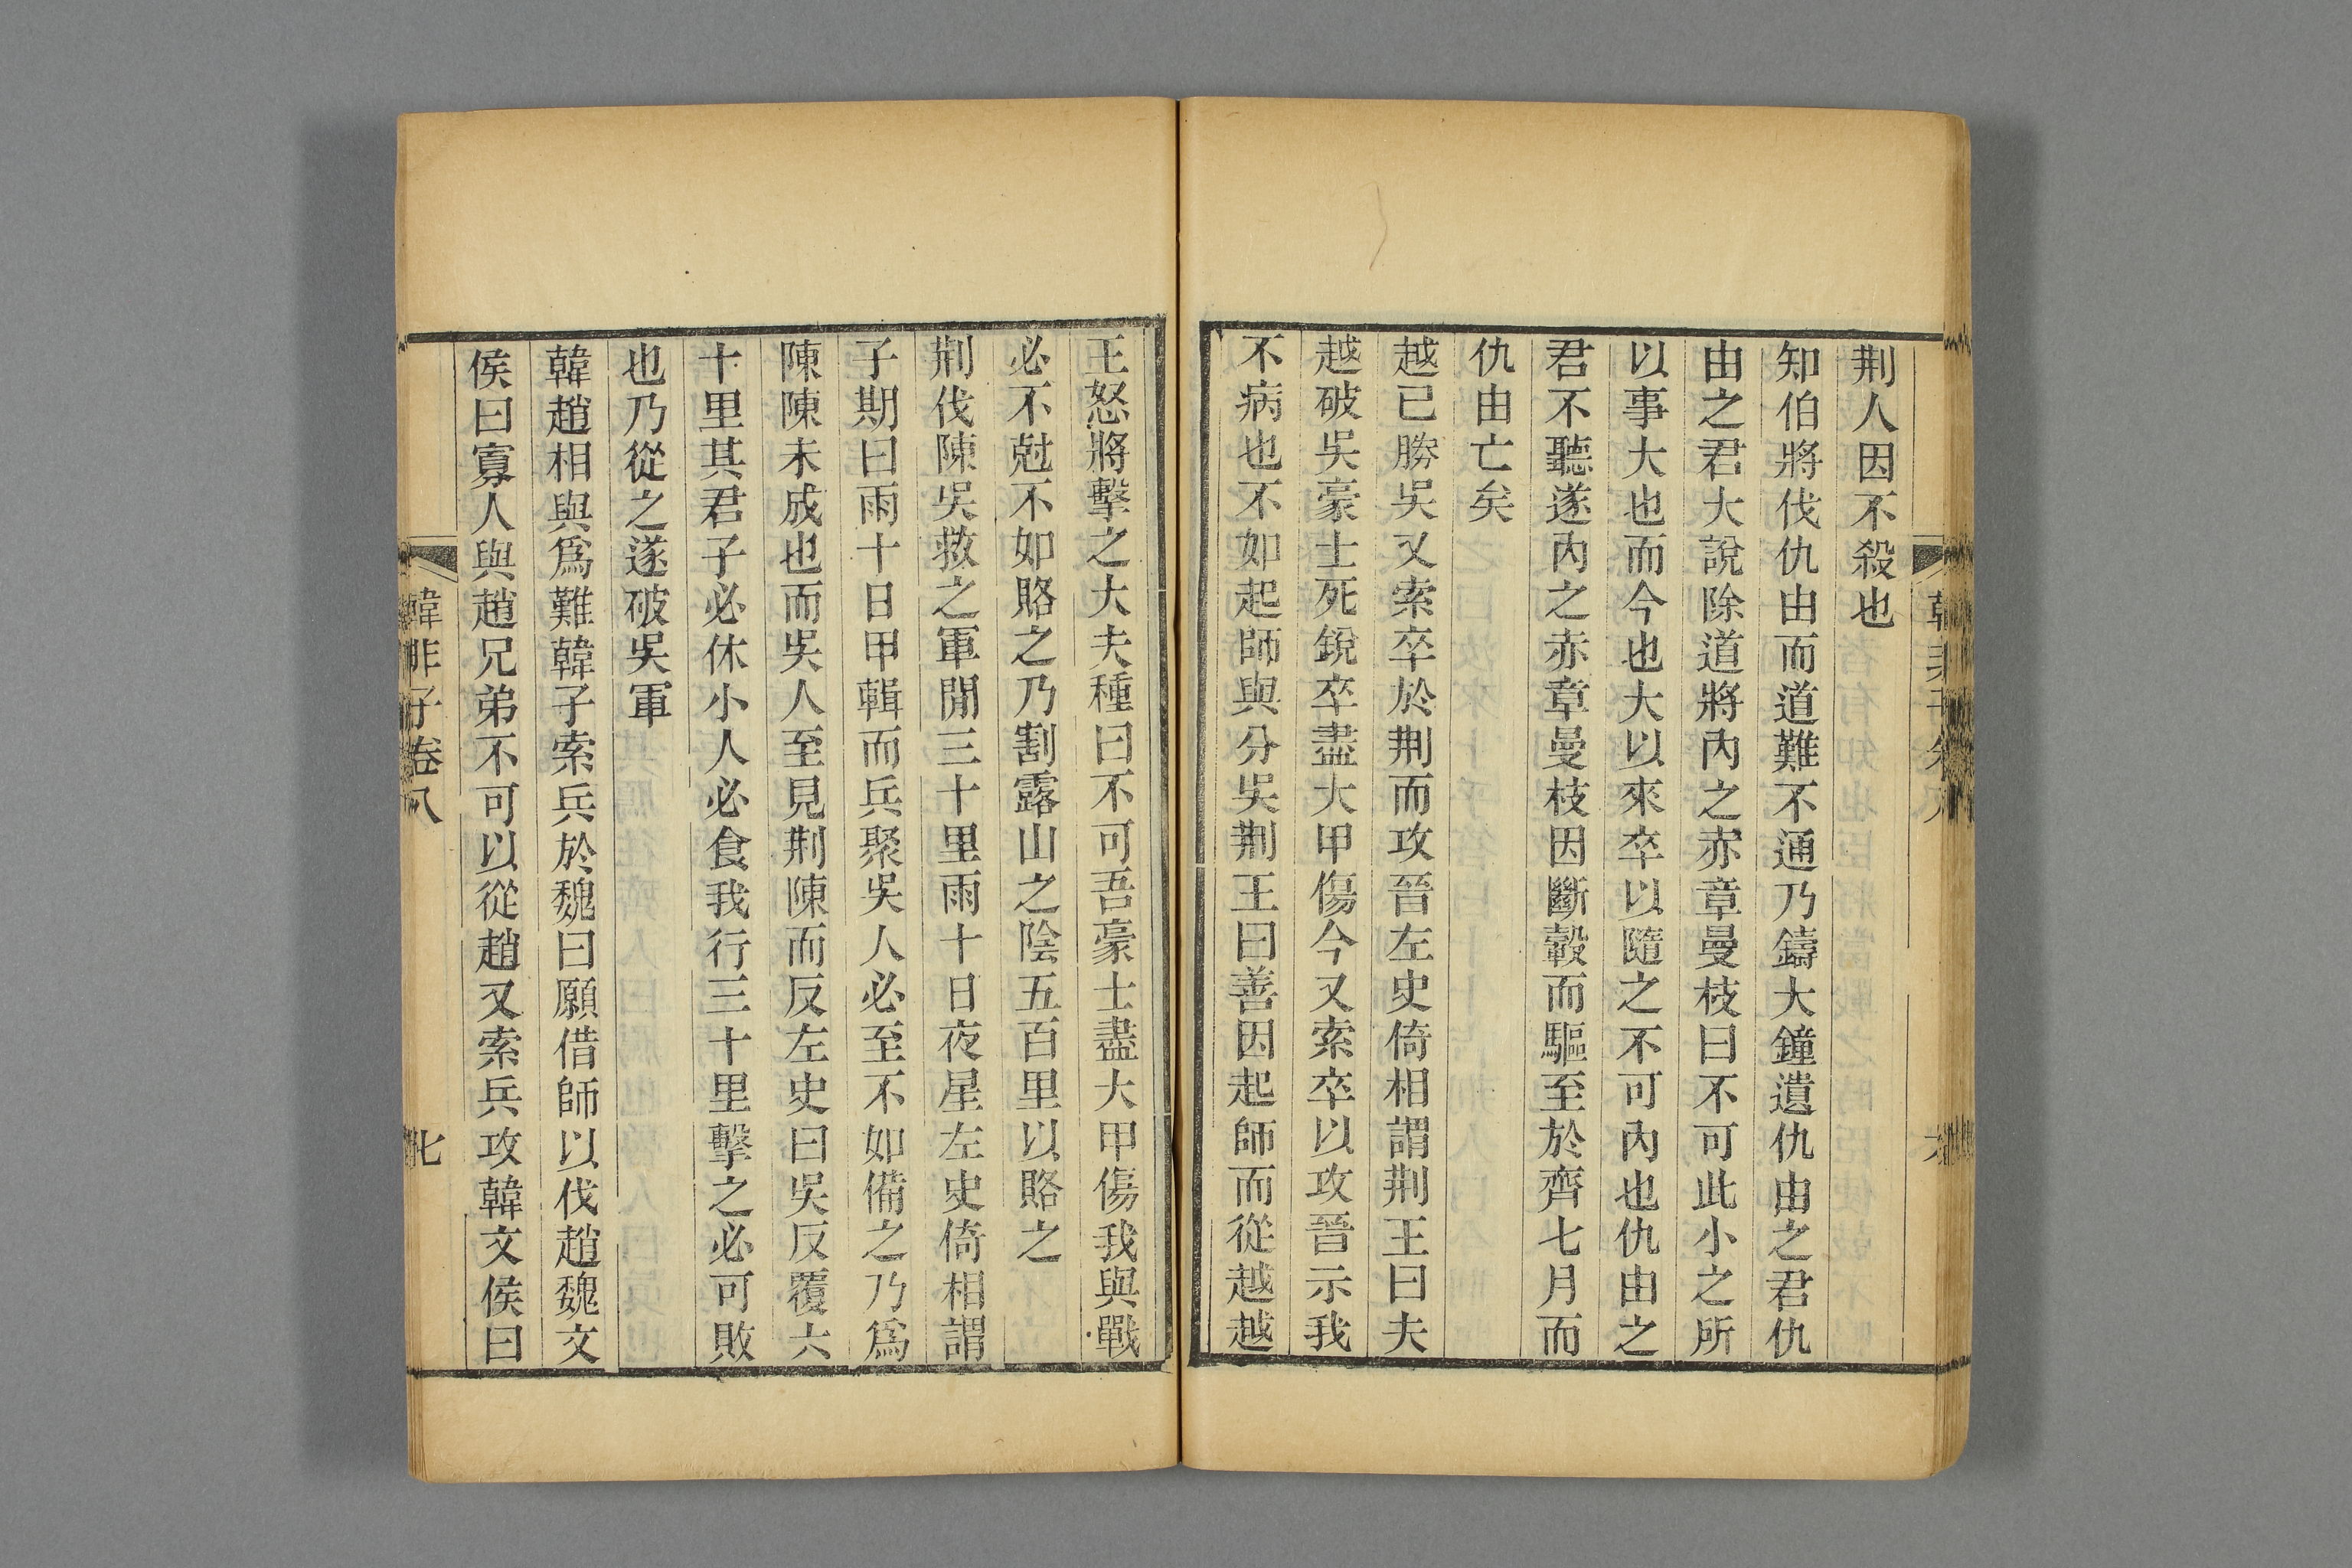 荆人因不殺也
知伯將伐仇由而道難不通乃鑄大鐘遺仇由之君仇
由之君大說除道將內之赤章曼枝曰不可此小之所
以事大也而今也大以來卒以隨之不可內也仇由之
君不聽遂內之赤章曼枝因斷轂而驅至於齊七月而
仇由亡矣
越已勝吳又索卒於荆而攻晉左史倚相謂荆王曰夫
越破吳豪士死銳卒盡大甲傷今又索卒以攻晉示我
不病也不如起師與分吳荆王曰善因起師而從越越
王怒將擊之大夫種曰不可吾豪士盡大甲傷我與戰
必不尅不如賂之乃割露山之陰五百里以賂之
荆伐陳吳救之軍閒三十里雨十日夜星左史倚相謂
子期曰雨十日甲輯而兵聚吳人必至不如備之乃爲
陳陳未成也而吳人至見荆陳而反左史曰吳反覆六
十里其君子必休小人必食我行三十里擊之必可敗
也乃從之遂破吳軍
韓趙相與爲難韓子索兵於魏曰願借師以伐趙魏文
侯曰寡人與趙兄弟不可以從趙又索兵攻韓文侯曰
韓非子卷八